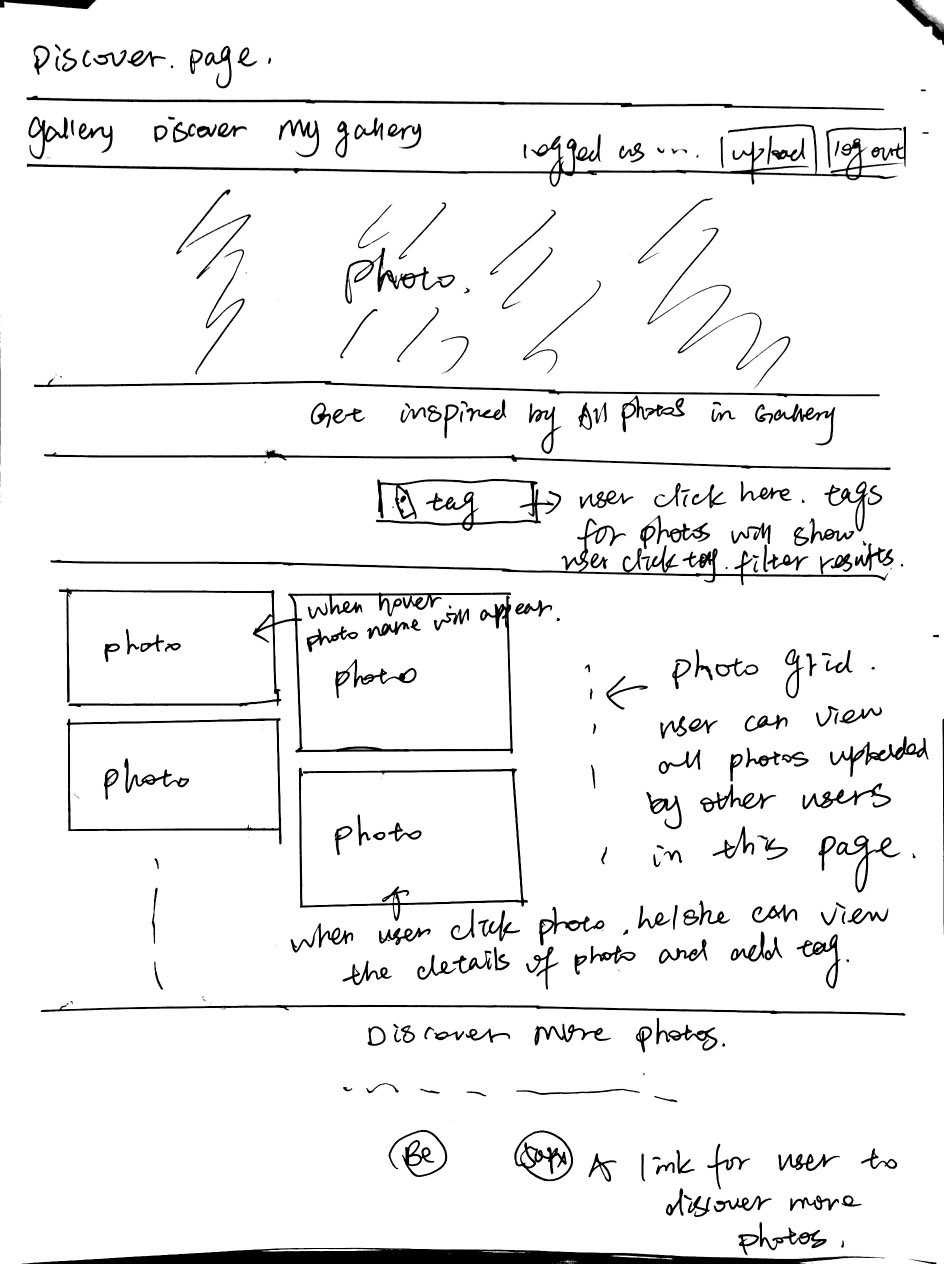 Discover. page.
Gallery Discover My gallery
logged as ... upload log out
photo.
Get inspired by All photos in Gallery
tag → user click here. tags
for photos will show
user click tag. filter results.
when hover
photo name will appear.
photo
photo
photo
photo
photo grid.
user can view
all photos uploaded
by other users
in this page.
when user click photo, he/she can view
the details of photo and add tag.
Discover more photos.
Be
A link for user to
discover more
photos.